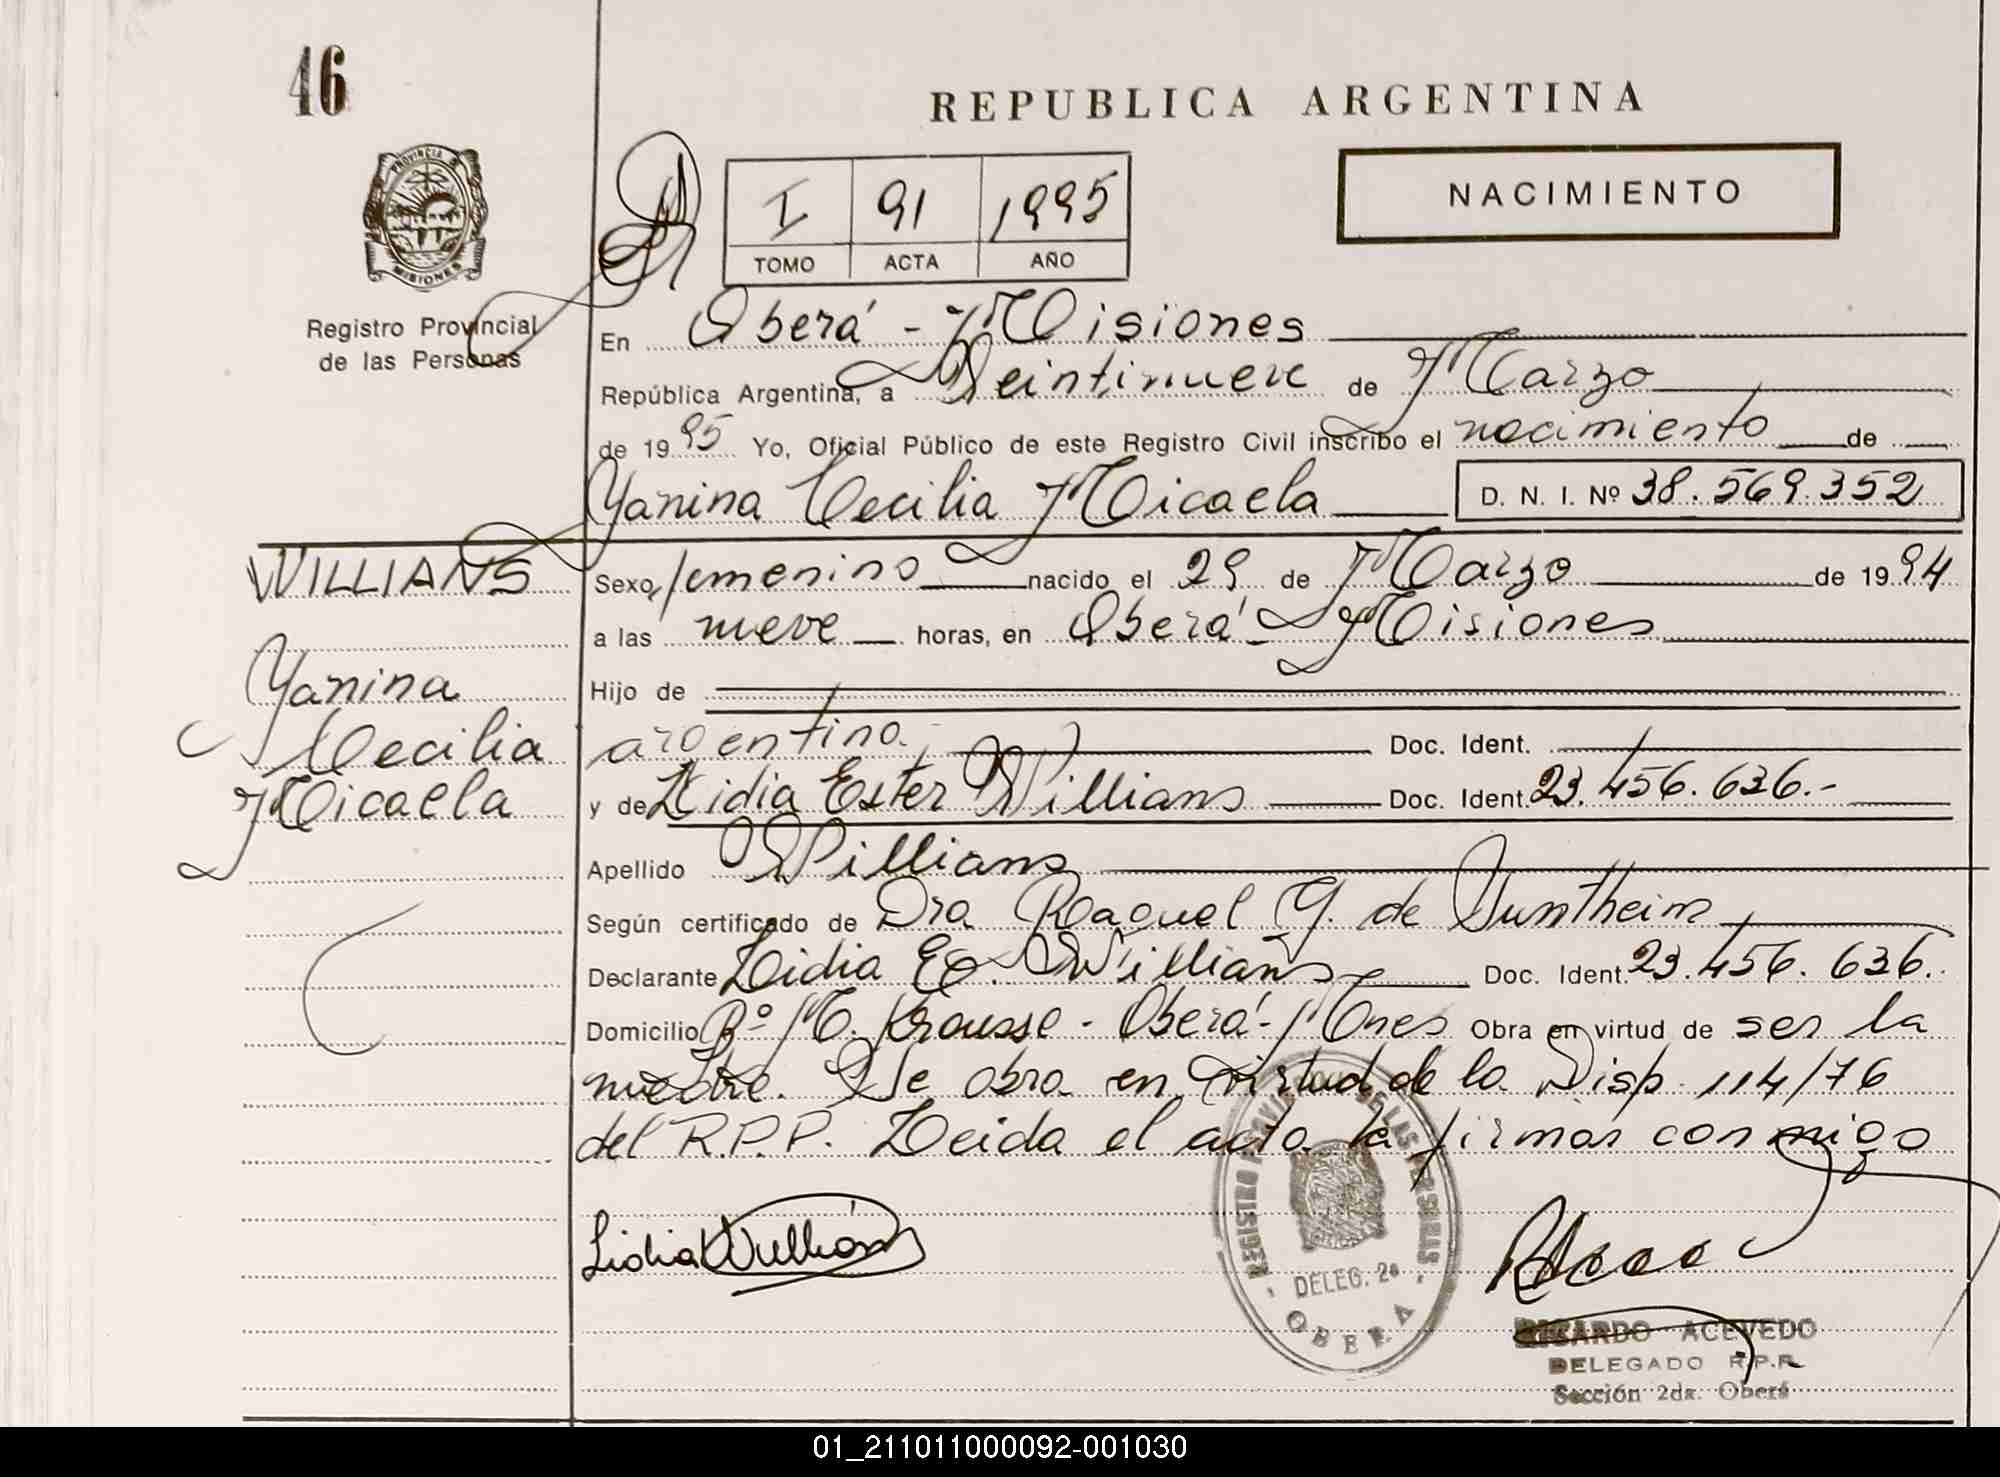 46
REPUBLICA ARGENTINA
PROVINCIA DE
MISIONES
Registro Provincial
de las Personas
I 91 1995
TOMO ACTA AÑO
NACIMIENTO
En Oberá - Misiones
República Argentina, a Veintinueve de Marzo
de 1995 Yo, Oficial Público de este Registro Civil inscribo el nacimiento de
Yanina Cecilia Micaela D. N. I. Nº 38.569.352
WILLIANS
Yanina
Cecilia
Micaela
Sexo femenino nacido el 29 de Marzo de 1994
a las nueve horas, en Oberá - Misiones
Hijo de
argentina. Doc. Ident.
y de Lidia Ester Willians Doc. Ident. 23.456.636.-
Apellido Willians
Según certificado de Dra Raquel G. de Suntheim
Declarante Lidia E. Willians Doc. Ident. 23.456.636.
Domicilio Bº M. Krausse - Oberá - Mnes Obra en virtud de ser la
madre. Se obra en virtud de la Disp. 114/76
del R.P.P. Leida el acta la firman conmigo
Lidia Willians
REGISTRO PROVINCIAL DE LAS PERSONAS
DELEG. 2a
OBERA
RICARDO ACEVEDO
DELEGADO R.P.P.
Sección 2da. Oberá
01_211011000092-001030